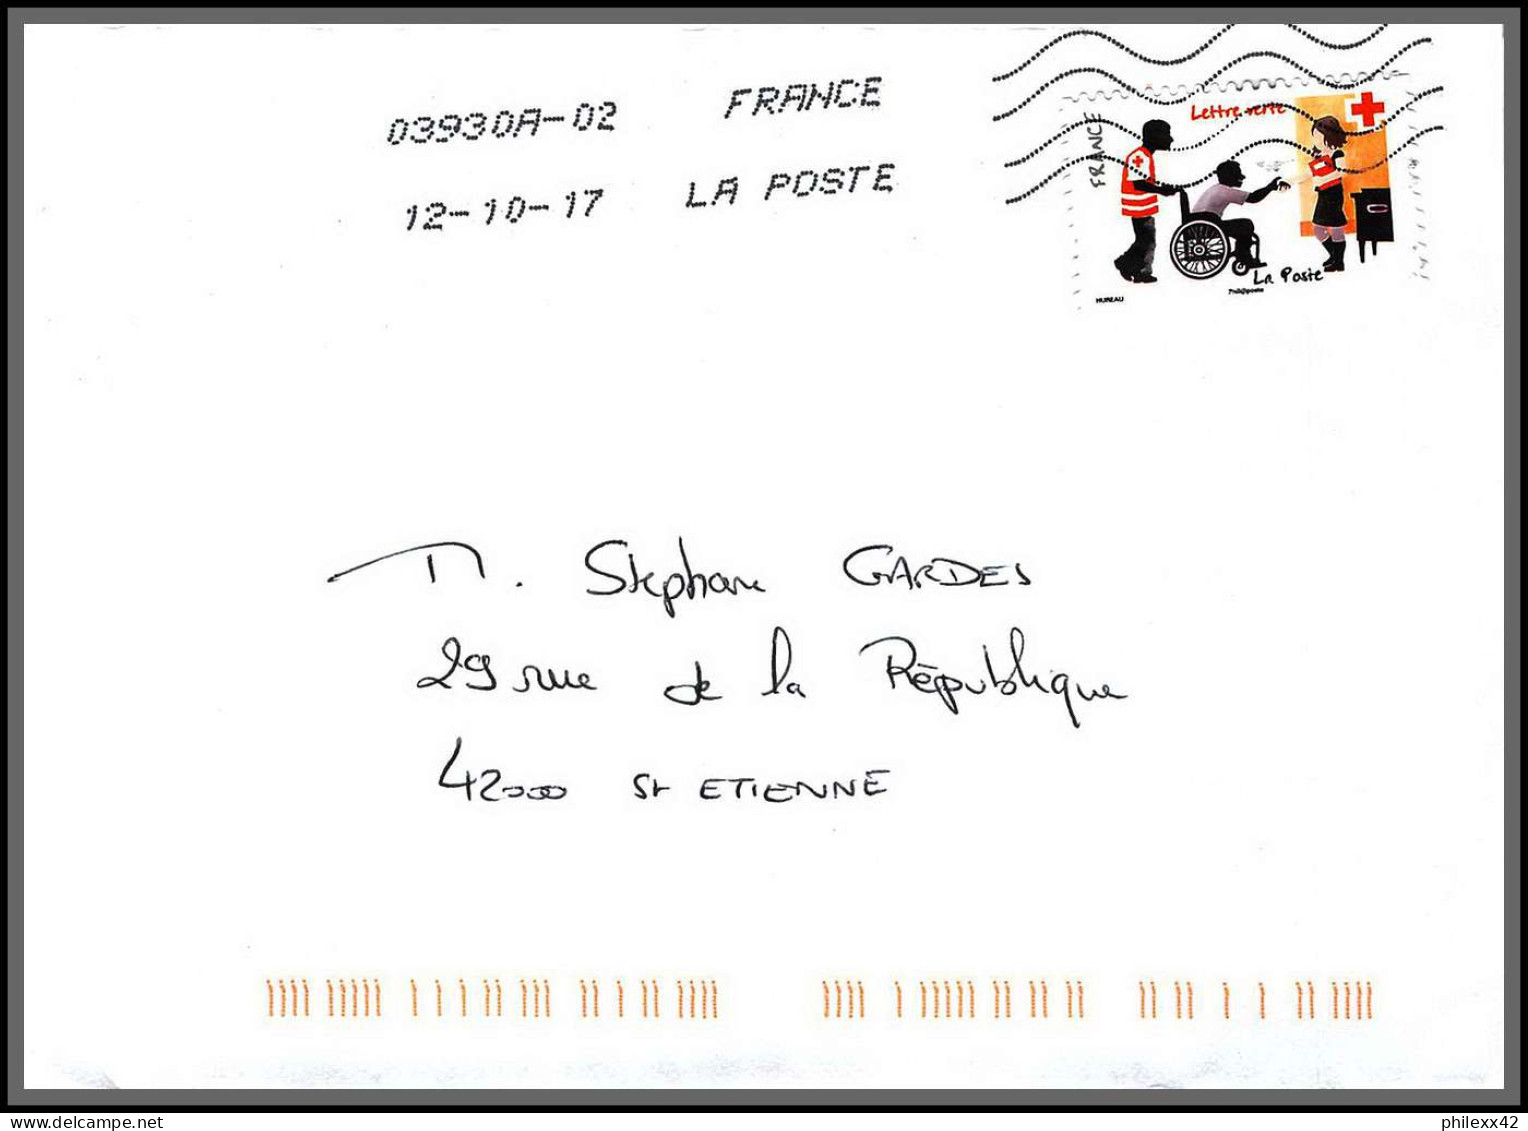 03930A-02 FRANCE
12-10-17 LA POSTE
FRANCE
Lettre verte
La Poste
HUREAU
Phil@poste
M. Stephane GARDES
29 rue de la République
42000 St ETIENNE
philexx42